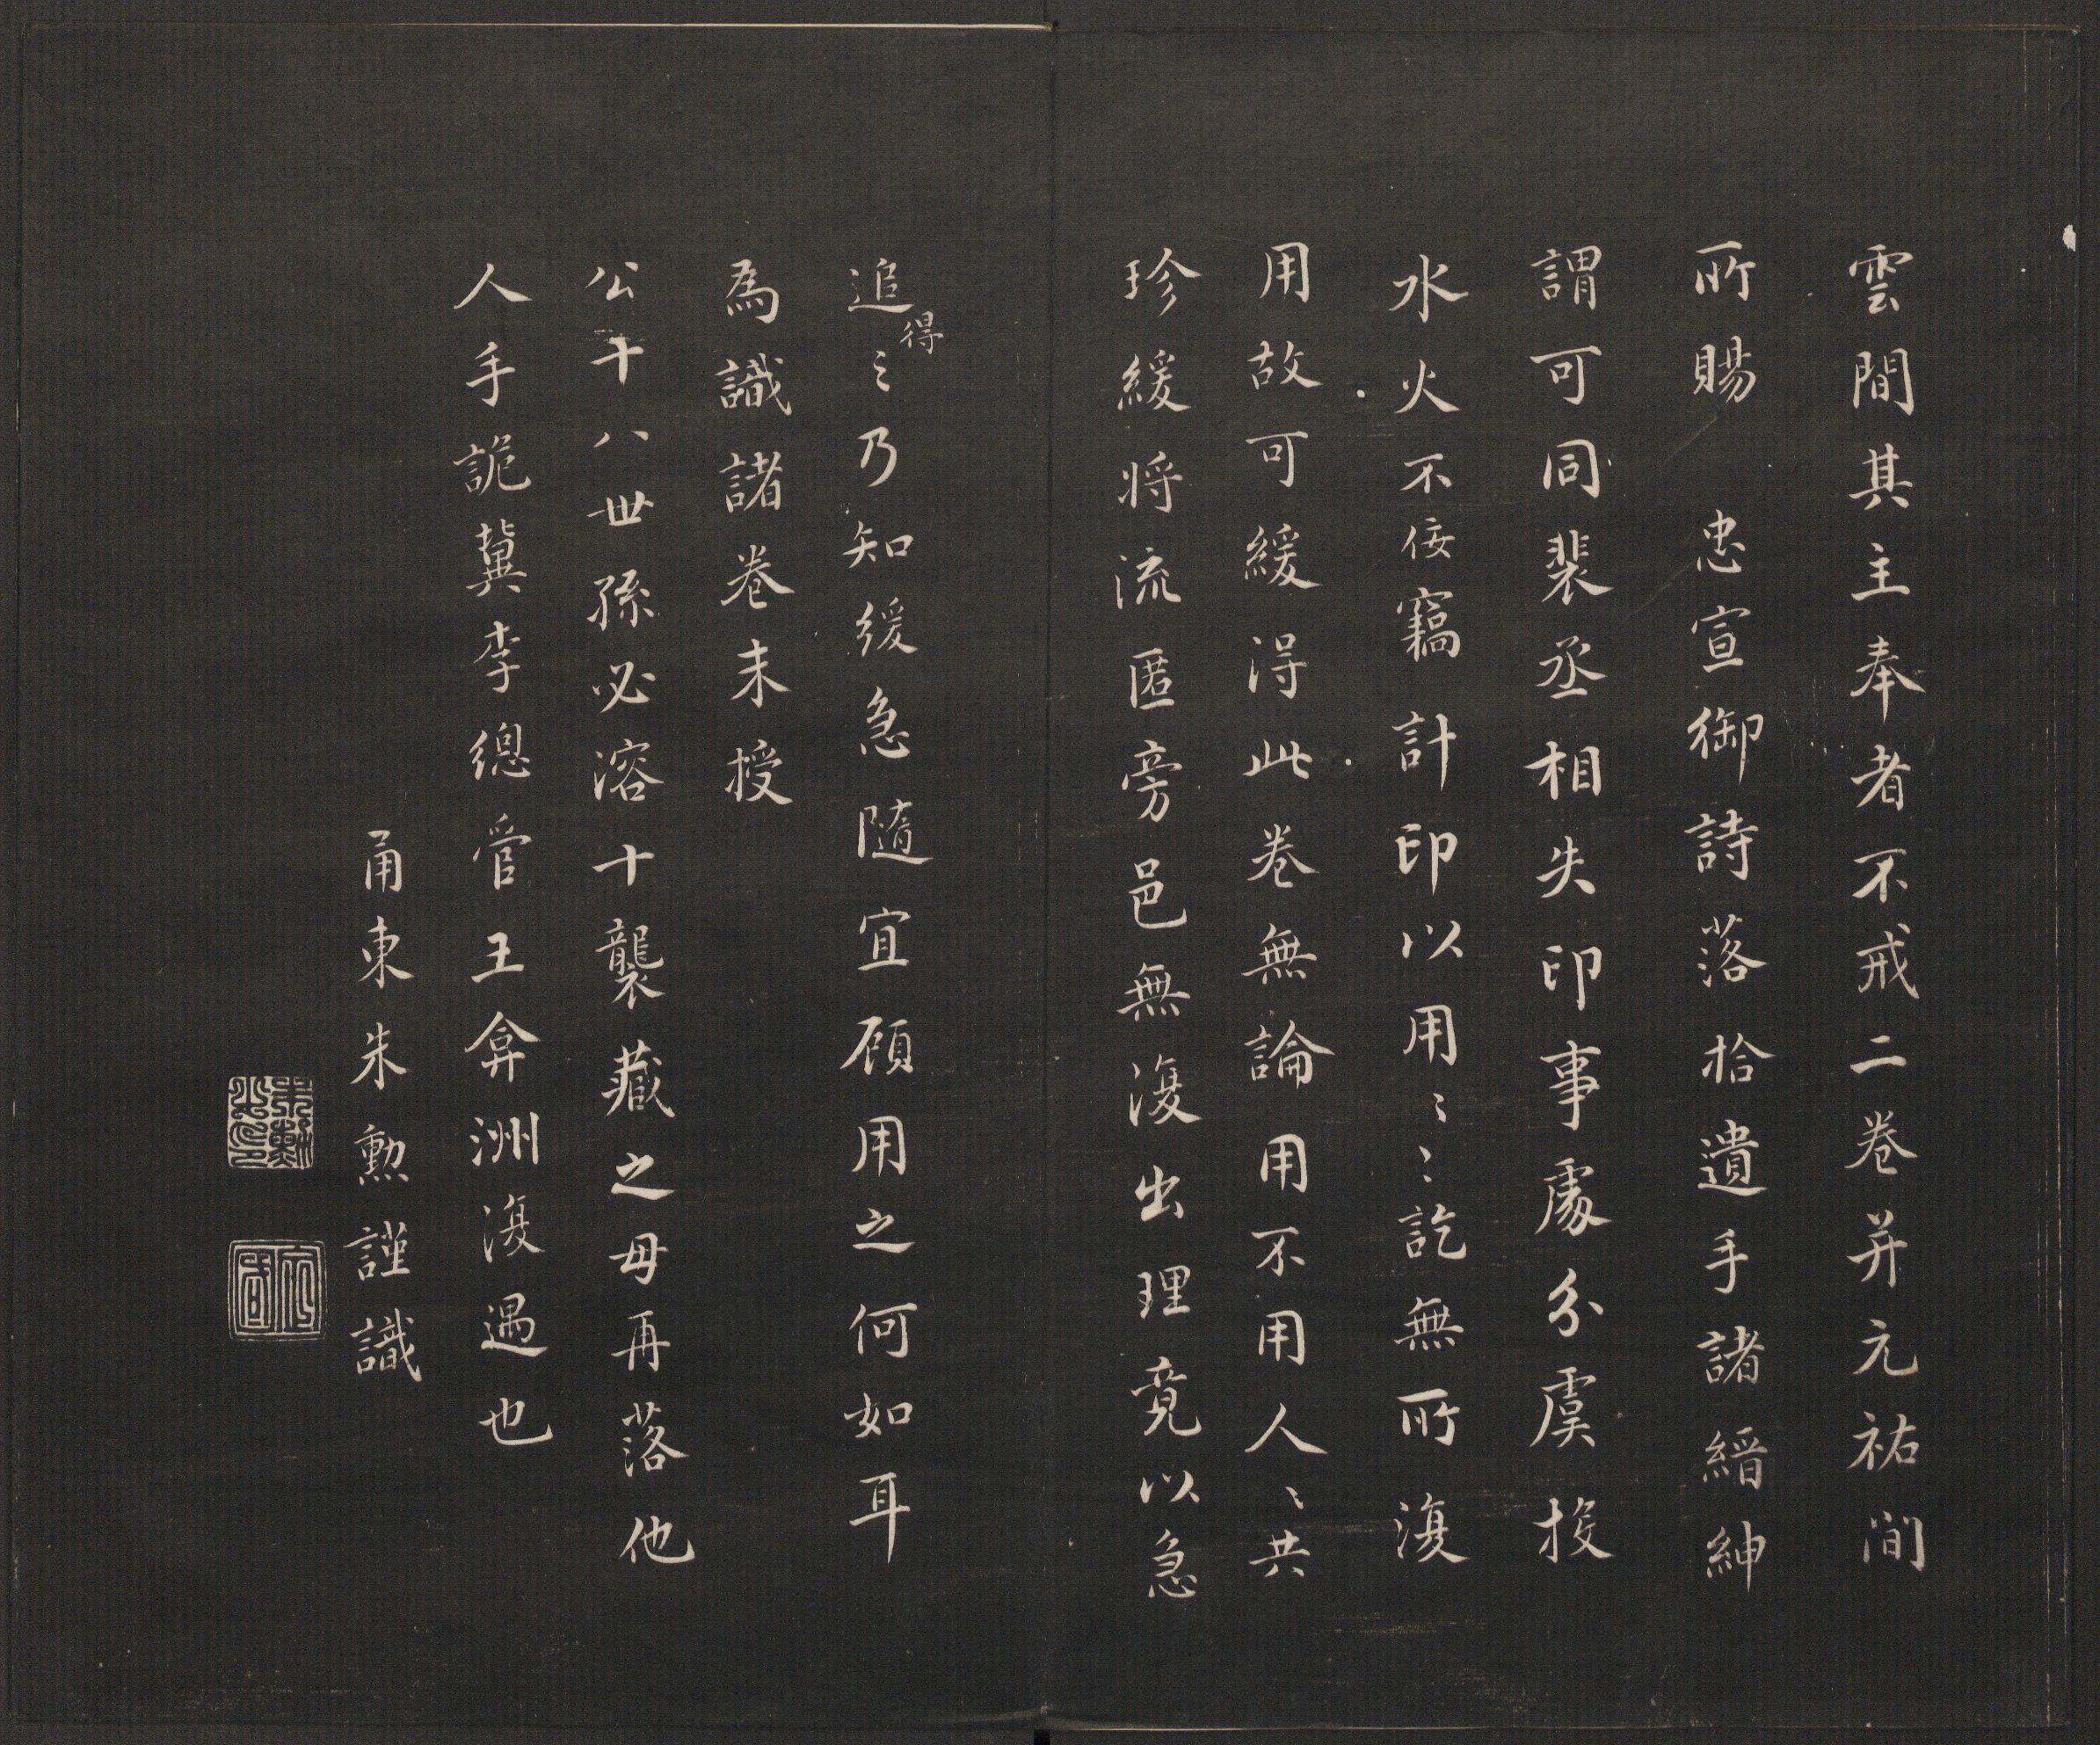 雲間其主奉者不戒二卷并元祐間
所賜　忠宣御詩落拾遺手諸縉紳
謂可同裴丞相失印事處分虞投
水火不佞竊計印以用〻〻訖無所復
用故可緩得此卷無論用不用人〻共
珍緩將流匿旁邑無復出理竟以急
追得〻乃知緩急隨宜顧用之何如耳
為識諸卷末授
公十八世孫必溶十襲藏之毋再落他
人手詭冀李總管王弇洲復遇也
甬東朱勲謹識